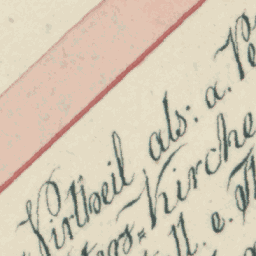 Virtheil als: a. Pe
ters=Kirche
ll. e. Th